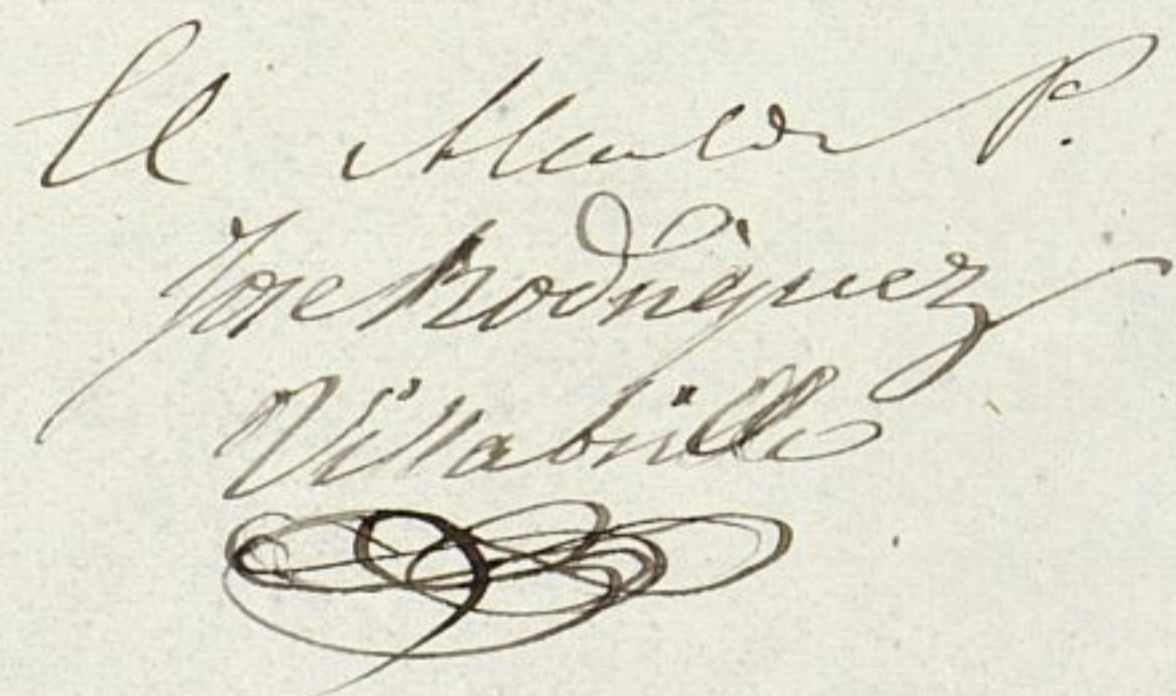 El Alcalde P.
Jose Rodriguez
Villabrille